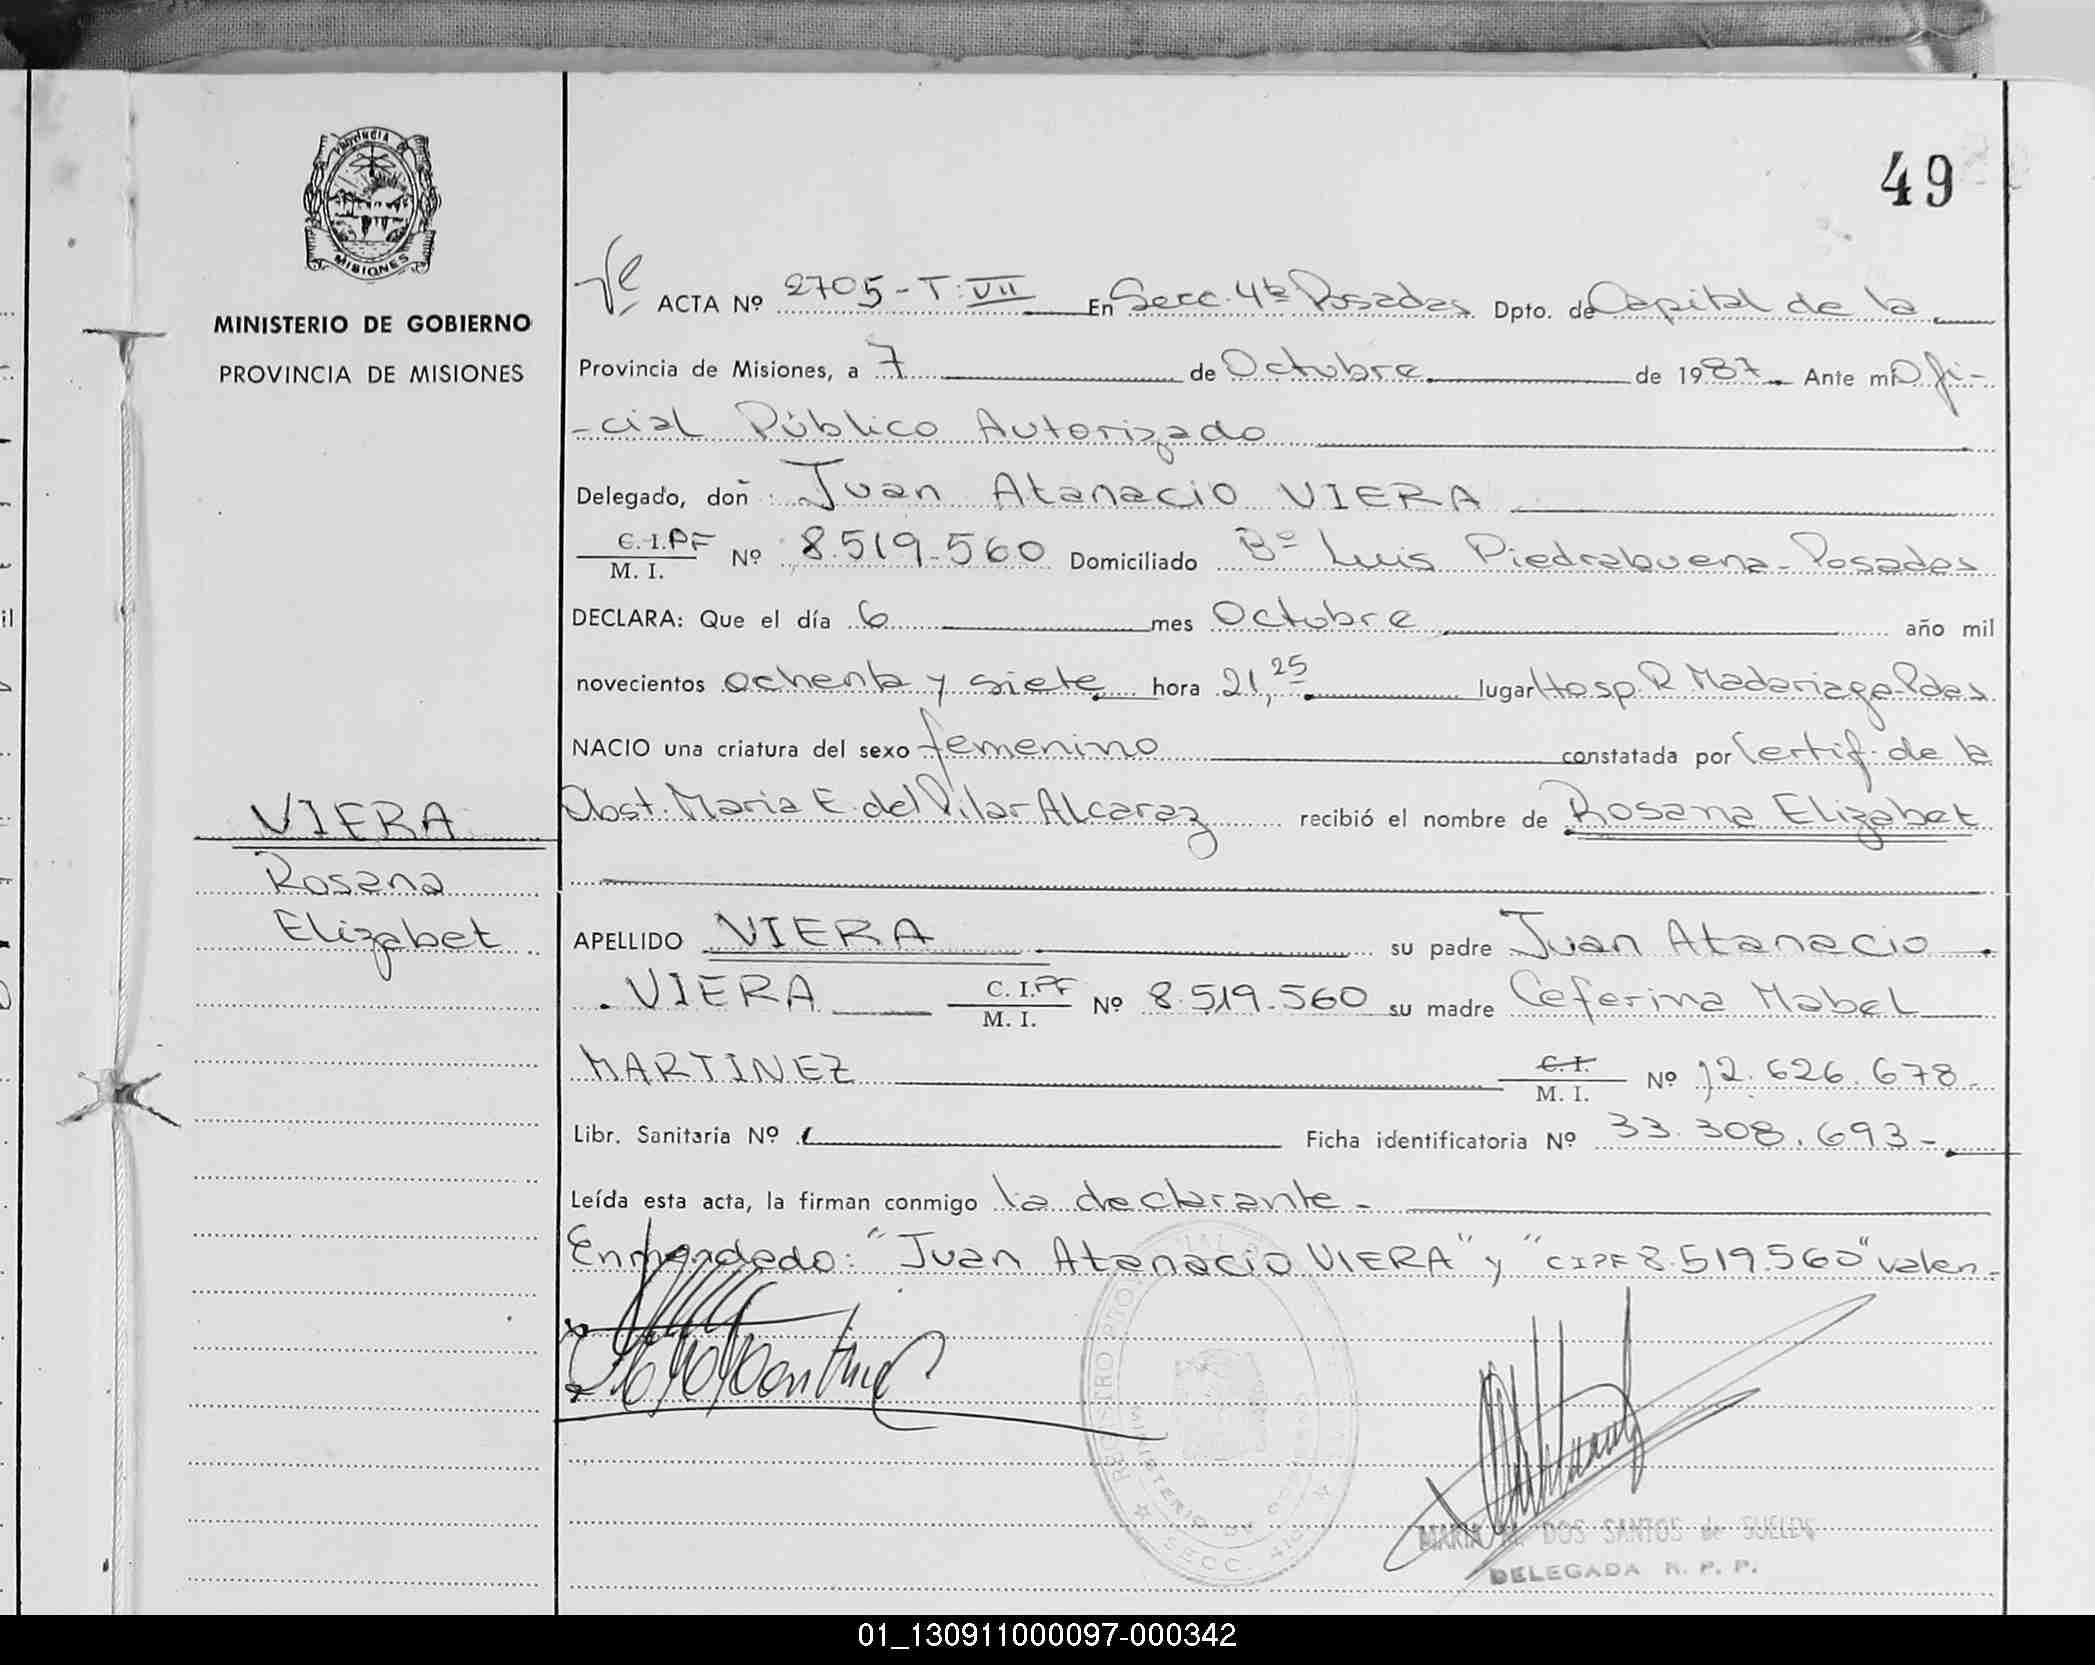 49
PROVINCIA DE
MISIONES
MINISTERIO DE GOBIERNO
PROVINCIA DE MISIONES
ACTA Nº 2705-T:VII En Secc. 4ta Posadas Dpto. de Capital de la
Provincia de Misiones, a 7 de Octubre de 1987 Ante mí Ofi-
-cial Público Autorizado
Delegado, doñ : Juan Atanacio VIERA
C.I.PF
M. I. Nº 8.519.560 Domiciliado Bº Luis Piedrabuena-Posadas
DECLARA: Que el día 6 mes Octubre año mil
novecientos ochenta y siete hora 21,25 lugar Hosp. R Madariaga-Pdas
NACIO una criatura del sexo femenino constatada por Certif. de la
Obst. Maria E. del Pilar Alcaraz recibió el nombre de Rosana Elizabet
VIERA
Rosana
Elizabet
APELLIDO VIERA su padre Juan Atanacio
VIERA C. I.PF
M. I. Nº 8.519.560 su madre Ceferina Mabel
MARTINEZ C. I.
M. I. Nº 12.626.678
Libr. Sanitaria Nº Ficha identificatoria Nº 33.308.693-
Leída esta acta, la firman conmigo la declarante-
Enmendado: "Juan Atanacio VIERA" y "CIPF 8.519.560" valen-
REGISTRO
MINISTERIO DE GOBIERNO
SECC. 4
MARIA DOS SANTOS de SUELEN
DELEGADA R. P. P.
01_130911000097-000342